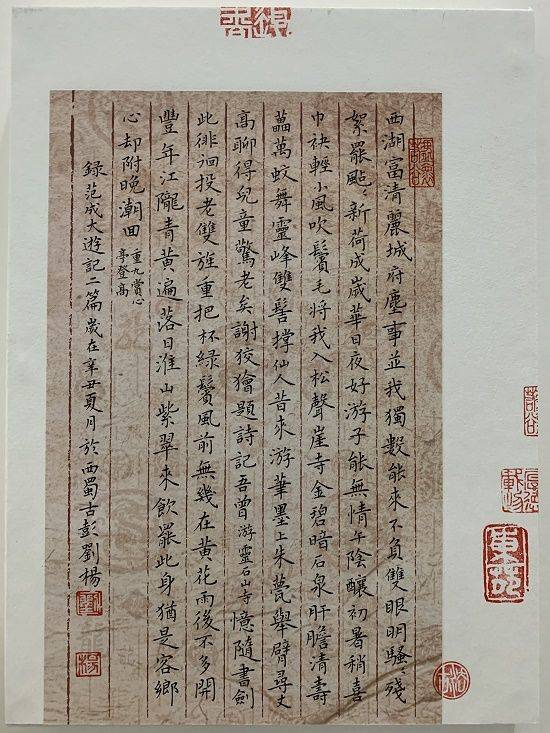 西湖富清麗城府塵事並我獨數能來不負雙眼明騷〻殘
絮罷颭〻新荷成歲華日夜好游子能無情午陰釀初暑稍喜
巾袂輕小風吹鬢毛將我入松聲崖寺金碧暗石泉肝膽清壽
藟萬蛟舞靈峰雙髻撐仙人昔來游華墨上朱甍舉臂尋丈
高聊得兒童驚老矣謝狡獪題詩記吾曾游靈石山寺憶隨書劍
此徘徊投老雙旌重把杯綠鬢風前無幾在黃花雨後不多開
豐年江隴青黃遍落日淮山紫翠來飲罷此身猶是客鄉
心却附晚潮回重九賞心亭登高
錄范成大遊記二篇歲在辛丑夏月於西蜀古彭劉楊
劉
楊